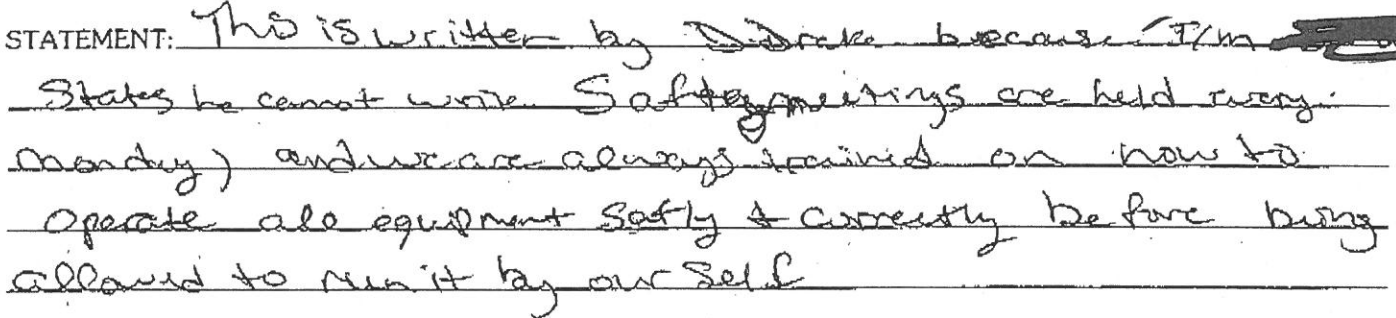 STATEMENT: This is written by D. Drake because I/m
States he cannot write Saftey meetings are held every
monday) and we are always trained on how to
operate all equipment Safly & Correctly before being
allowed to run it by our Self